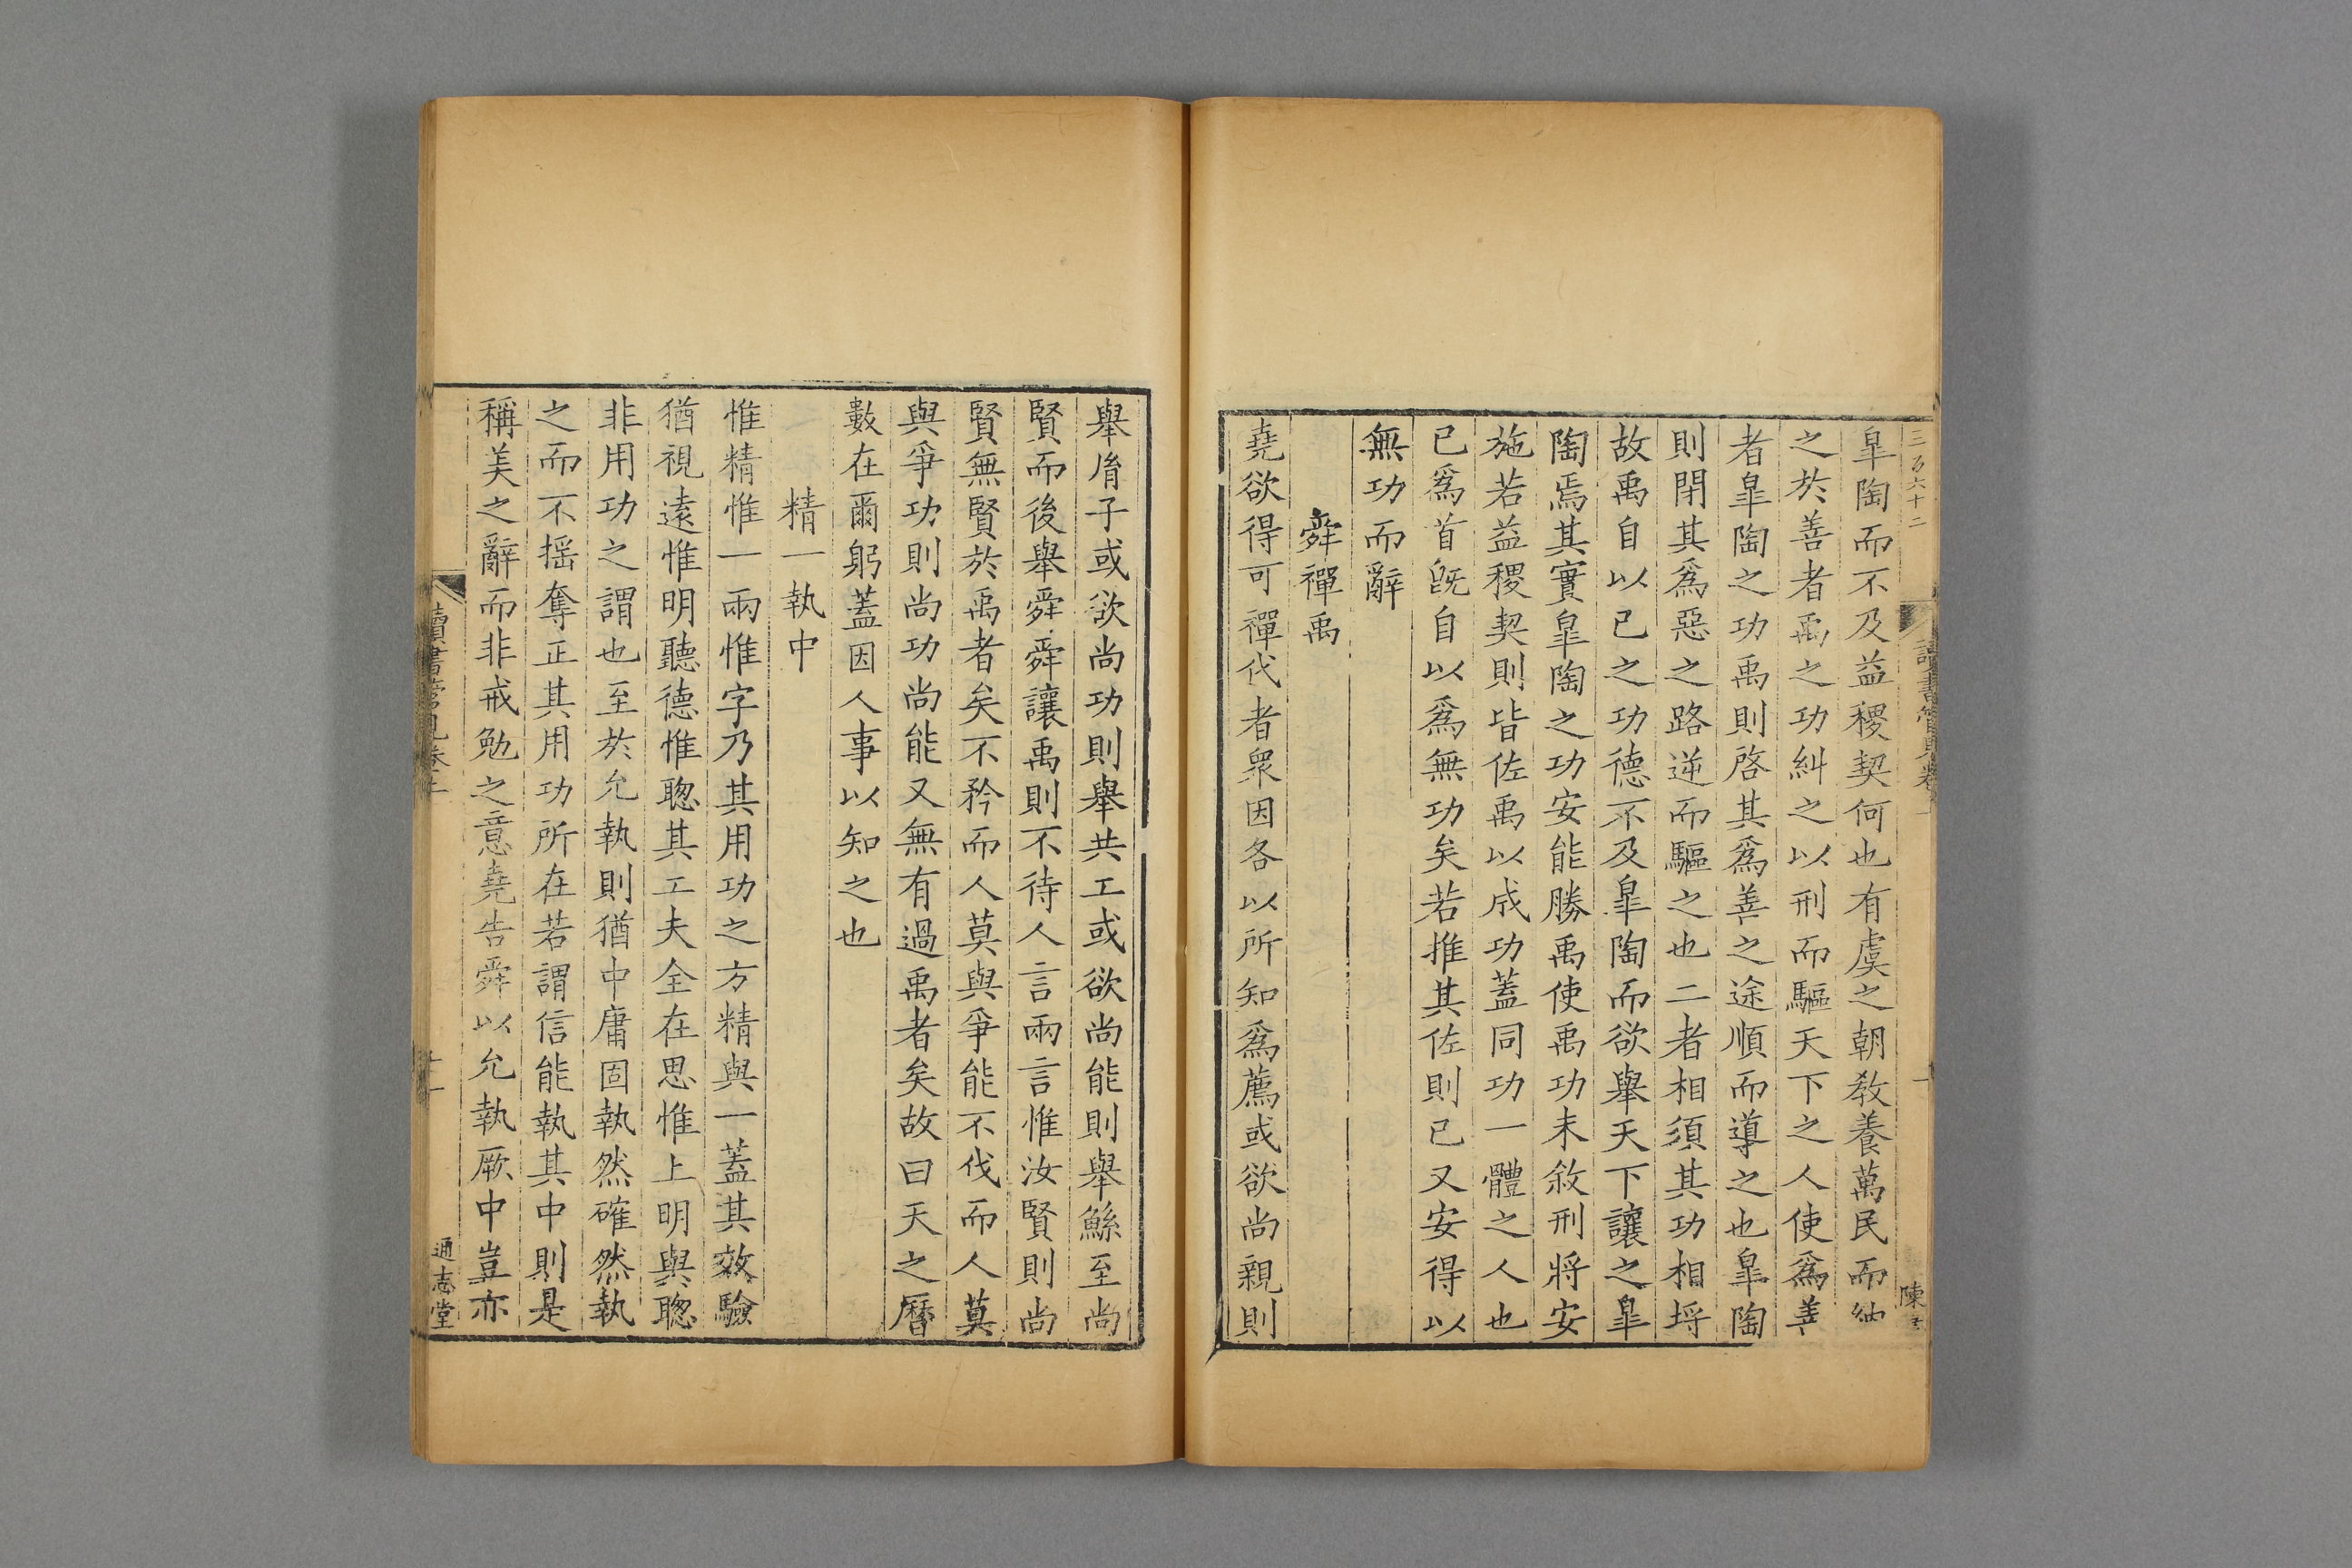 三百六十二
皐陶而不及益稷契何也有虞之朝敎養萬民而紬
之於善者禹之功糾之以刑而驅天下之人使爲善
者皐陶之功禹則啓其爲善之途順而導之也皐陶
則閉其爲惡之路逆而驅之也二者相須其功相埒
故禹自以已之功德不及皐陶而欲舉天下讓之皐
陶焉其實皐陶之功安能勝禹使禹功未敘刑將安
施若益稷契則皆佐禹以成功蓋同功一體之人也
已爲首旣自以爲無功矣若推其佐則已又安得以
無功而辭
舜禪禹
堯欲得可禪代者衆因各以所知爲薦或欲尚親則
舉胤子或欲尚功則舉共工或欲尚能則舉鯀至尚
賢而後舉舜舜讓禹則不待人言兩言惟汝賢則尚
賢無賢於禹者矣不矜而人莫與爭能不伐而人莫
與爭功則尚功尚能又無有過禹者矣故曰天之曆
數在爾躬蓋因人事以知之也
精一執中
惟精惟一兩惟字乃其用功之方精與一蓋其效驗
猶視遠惟明聽德惟聰其工夫全在思惟上明與聰
非用功之謂也至於允執則猶中庸固執然確然執
之而不搖奪正其用功所在若謂信能執其中則是
稱美之辭而非戒勉之意堯告舜以允執厥中豈亦
讀書管見卷上
十一
通志堂